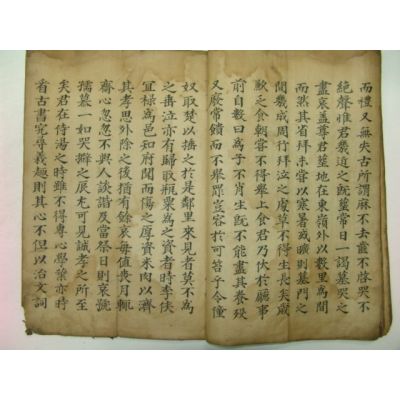 而禮又無失古所謂麻不去虀不啓哭不
絶聲唯君幾迫之旣葬常日一謁墓哭之
盡哀盖尊君葬地在東嶺外以數里爲間
而然其省拜未嘗以寒暑或曠則墓門之
間幾成周行拜泣之處草不得生長矣歲
歉之食朝嘗不得擧上食君乃伏於廳事
前自數曰爲子不肖生旣不能盡其養歿
又廢常饋而不擧衆豈容於可苔乎令僮
奴取楚以撫之於是鄰里來見者莫不爲
之垂泣亦有歸取瓶粟爲之資者時李侯
冝祿爲邑知府聞而傷之厚資米肉以濟
其孝思外除之後猶有餘哀每値喪月輒
齊心忽忽不與人談諧及當祭日則哀號
孺慕一如哭擗之辰尤可見誠孝之所至
矣君在侍湯之時雖不得專心學業亦時
看古書究尋義趣則其心不但以治文詞